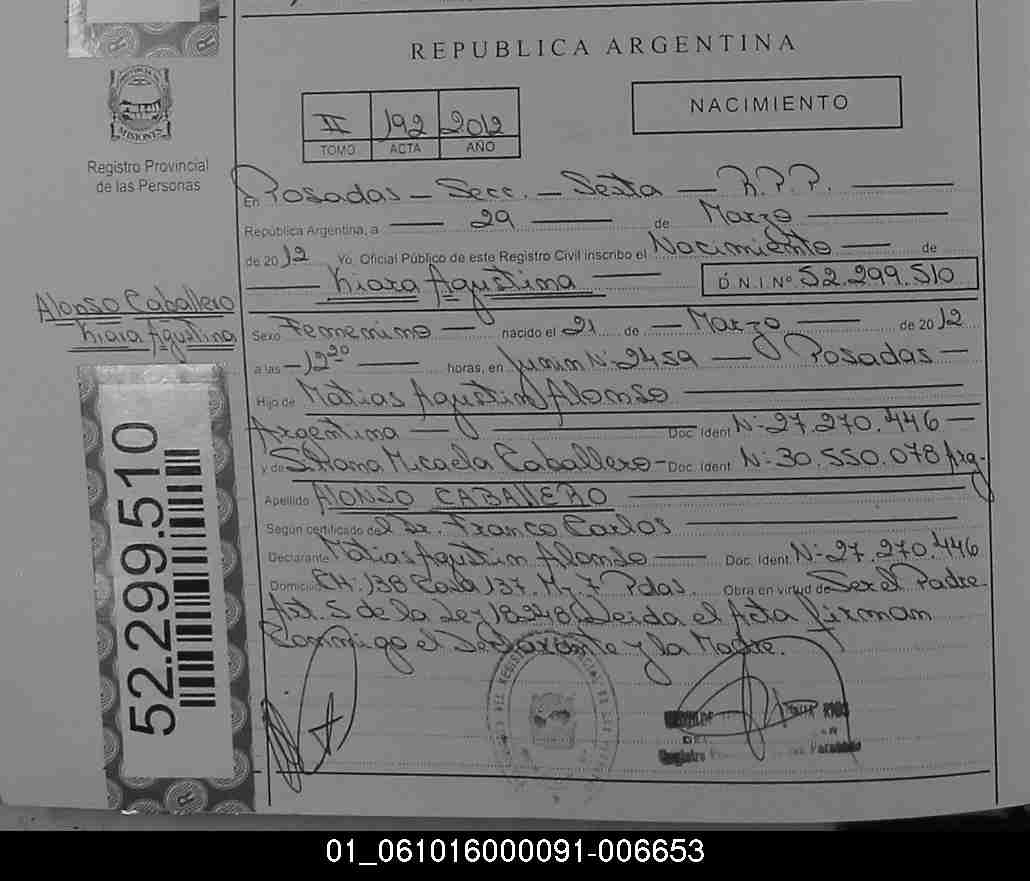 REPUBLICA ARGENTINA
MISIONES
Registro Provincial
de las Personas
II 192 2012
TOMO ACTA AÑO
NACIMIENTO
En Posadas - Secc. - Sexta - R.P.P.
República Argentina, a 29 de Marzo
de 2012 Yo, Oficial Público de este Registro Civil inscribo el Nacimiento de
Kiara Agustina D.N.I Nº 52.299.510
Alonso Caballero
Kiara Agustina
Sexo Femenino nacido el 21 de Marzo de 2012
a las 12 20 horas, en Junin Nº 2459 Posadas
Hijo de Matias Agustin Alonso
Argentina Doc. Ident Nº 27.270.446
y de Silvana Micaela Caballero - Doc. Ident Nº 30.550.078 Arg.
Apellido ALONSO CABALLERO
Según certificado del Dr. Franco Carlos
Declarante Matias Agustin Alonso Doc. Ident. Nº 27.270.446
Domicilio CH. 138 Casa 137. Mz. 7 Pdas. Obra en virtud de Ser el Padre
Art. 5 de la Ley 18.248 Leida el Acta firman
Conmigo el Declarante y la Madre.
52.299.510
01_061016000091-006653